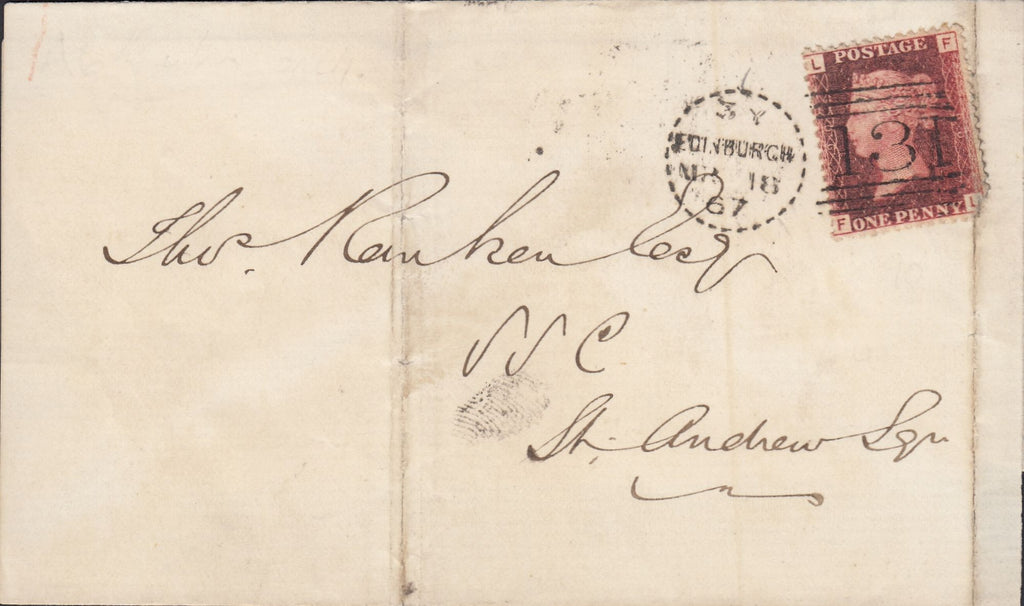 L POSTAGE F
131
F ONE PENNY L
SY
EDINBURGH
MR 18
67
Thos. Ranken Esq
SSC
St. Andrew Sqr